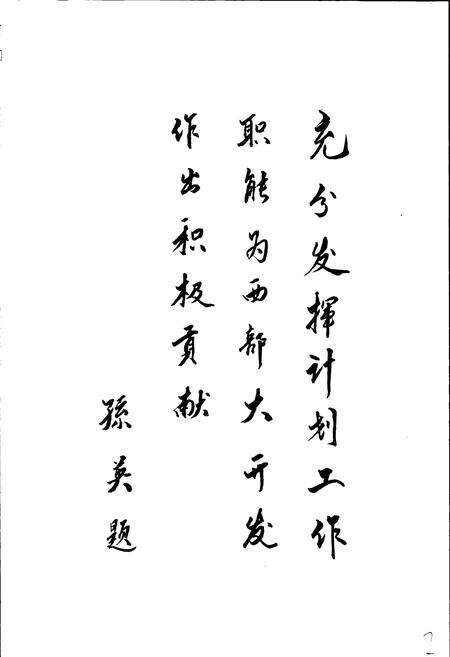 充分发挥计划工作
职能为西部大开发
作出积极贡献
孙英题